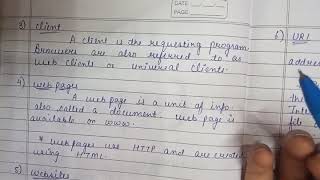 DATE
PAGE
3) client
A client is the requesting program
Browsers are also referred to as
web clients or universal clients.
4) web pages
A web page is a unit of info
also called a document. web page is
available on www.
* web pages use HTTP and are created
using HTML.
5) websites
6) URL
address
the
Inte
file